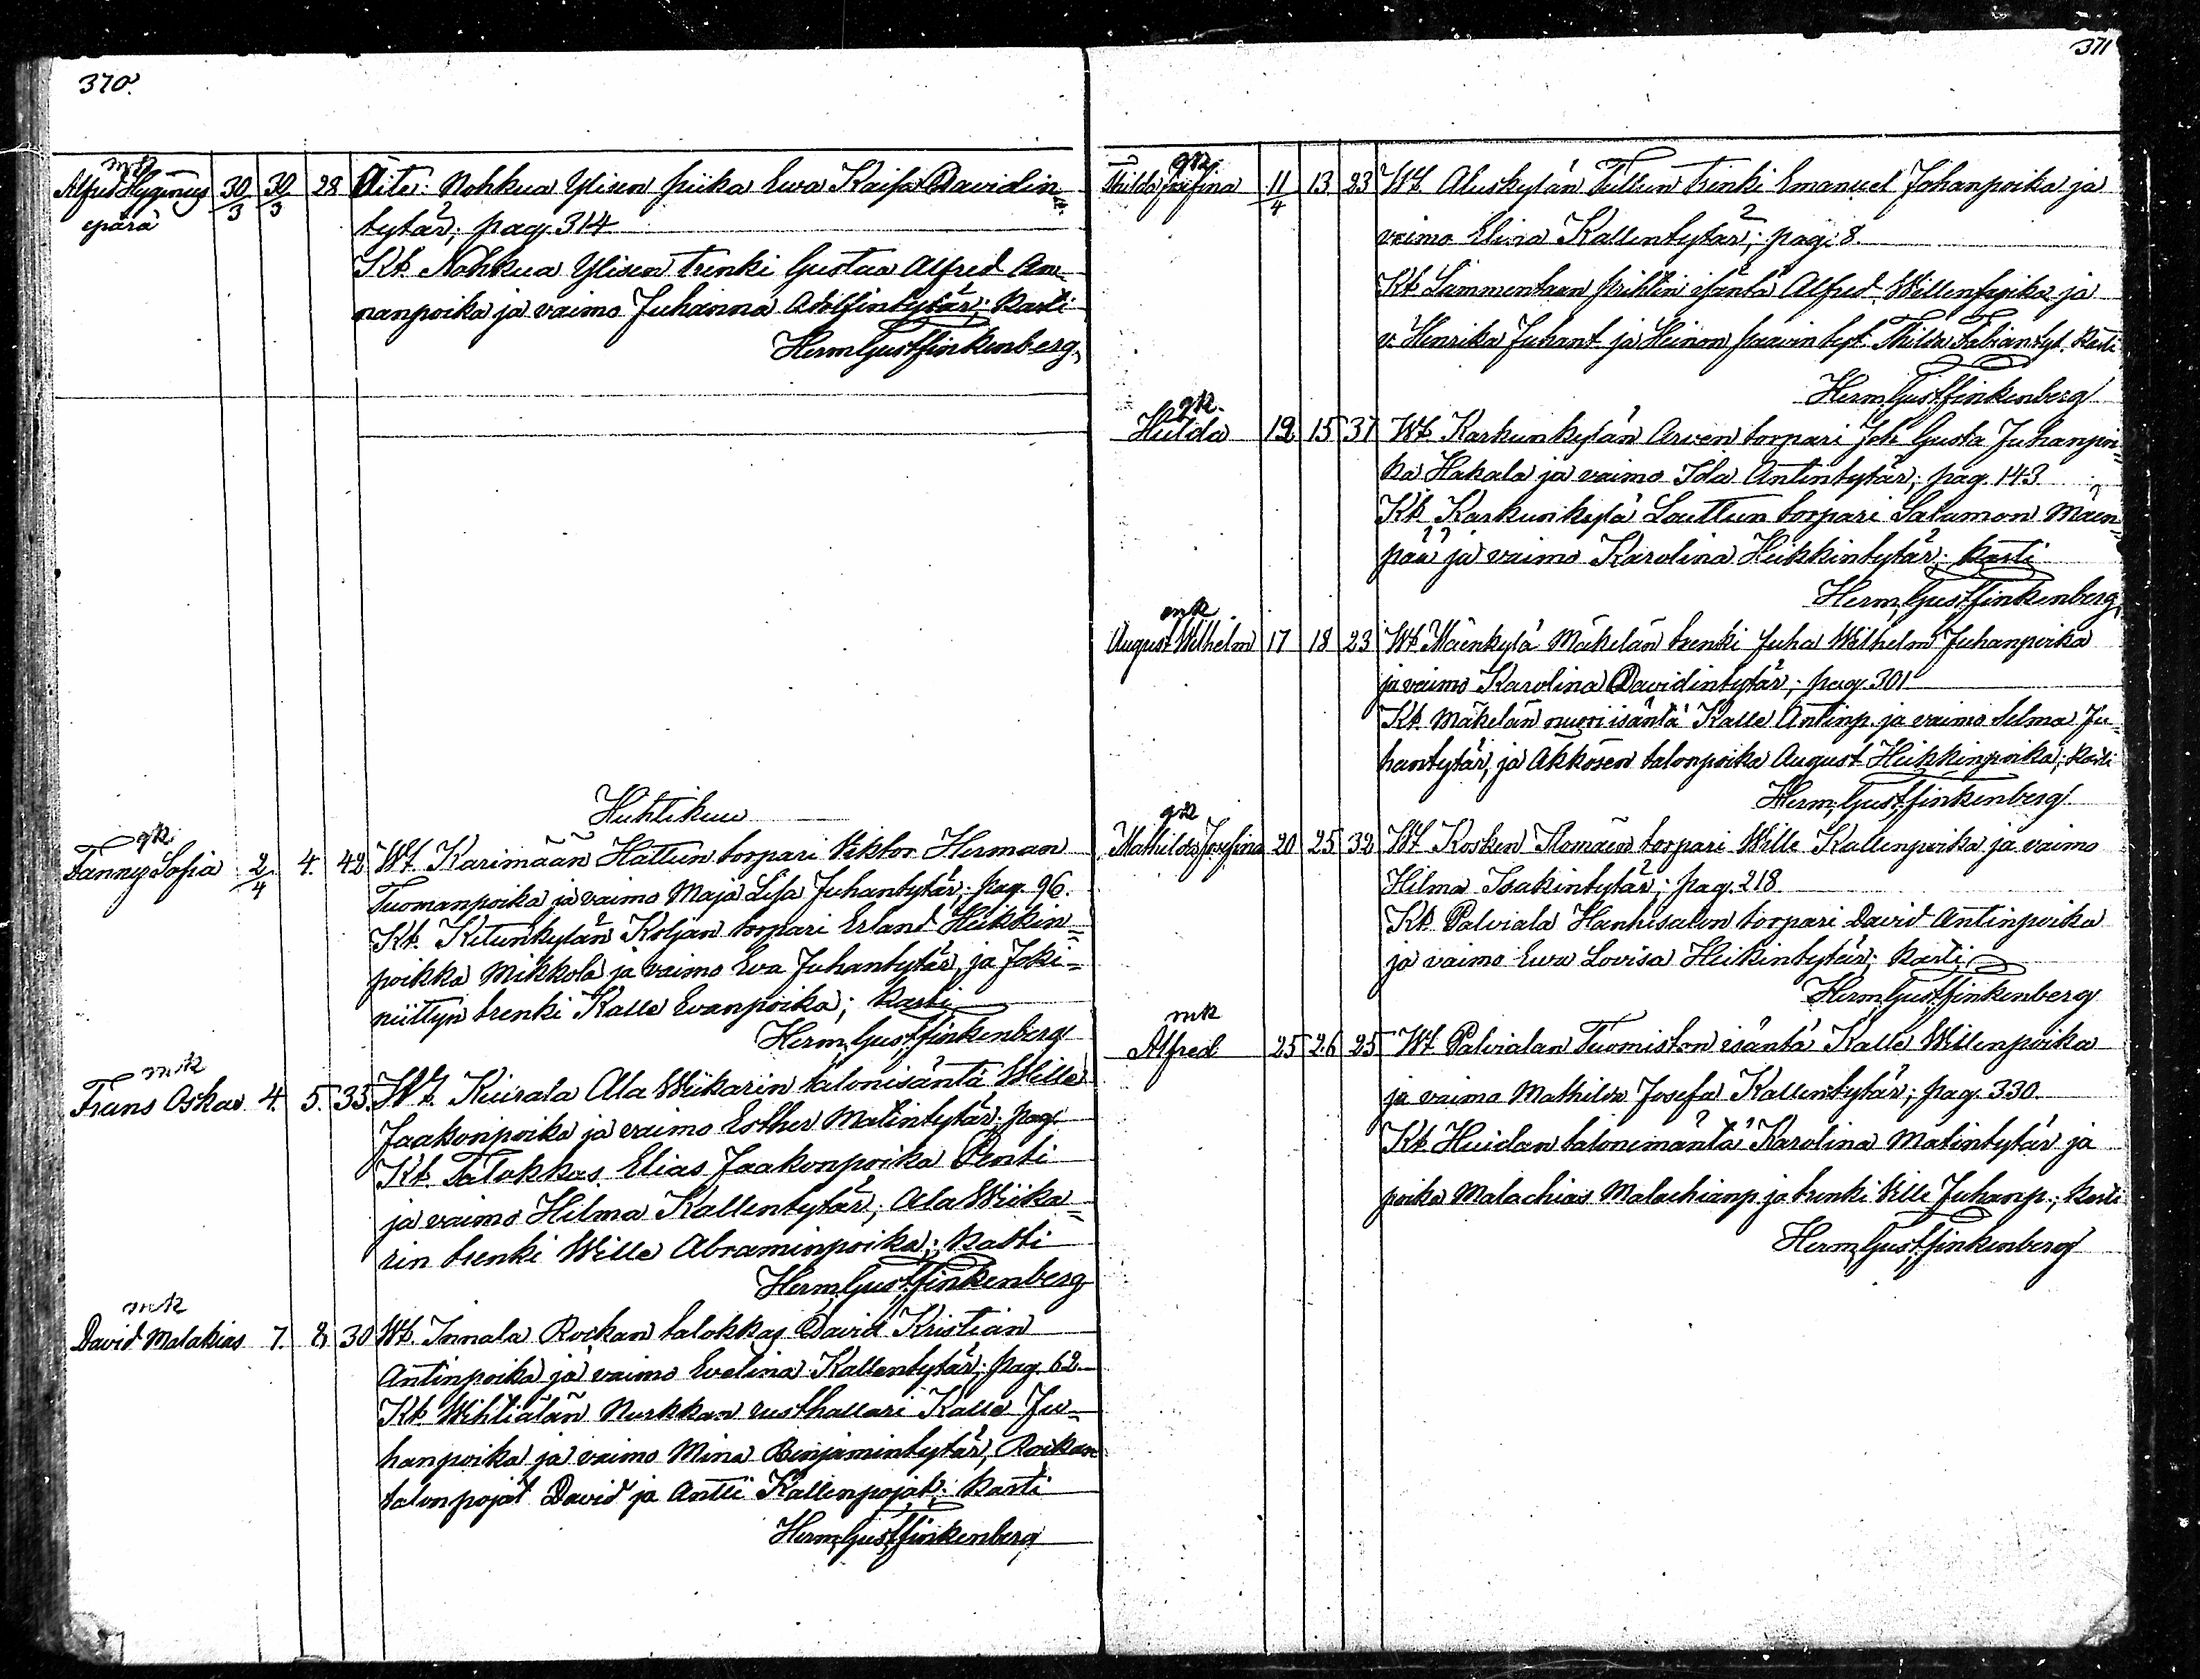 370.
mk
Alfred Hyginus 30/3 30/3 28 Äite: Nohkua Ylisen piika Ewa Kaisa Davidin
epärä tytär; pag. 314
Kt. Nohkua Ylisen trenki Gustaa Alfred An-
nanpoika ja vaimo Juhanna Adolfintytär; kasti
Herm. Gust. Finkenberg.
Huhtikuu
gk.
Fanny Sofia 2/4 4. 42 Wt. Karimään Hattun torpari Viktor Herman
Tuomanpoika ja vaimo Maja Lisa Juhantytär; pag. 96.
Kt. Kitunkylän Koljan torpari Erland Heikkin-
poikka Mikkola ja vaimo Eva Juhantytär, ja Joki-
niittyn trenki Kalle Evanpoika; kasti
Herm. Gust. Finkenberg
mk
Frans Oskar 4. 5. 35. Wt. Kiirala Ala Wiikarin talonisäntä Wille
Jaakonpoika ja vaimo Esther Matintytär; pag.
Kt. Talokkas Elias Jaakonpoika Penti
ja vaimo Hilma Kallentytär, Ala Wiika-
rin trenki Wille Abraminpoika; kasti
Herm. Gust. Finkenberg
mk
David Malakias 7. 8. 30 Wt. Innala Roikan talokkas David Kristian
Antinpoika ja vaimo Evelina Kallentytär; pag. 62
Kt. Wihtiälän Nurkkan rusthallari Kalle Ju-
hanpoika ja vaimo Mina Benjamintytär, Roikan
talonpojat David ja Antti Kallenpojat; kasti
Herm. Gust. Finkenberg
371
gk
Thilda Josefina 11/4 13 23 Wt. Aluskylän Tullun trenki Emanuel Johanpoika ja
vaimo Elina Kallentytär; pag. 8.
Kt. Lammentaan isäntä Alfred Willenpoika ja
v. Henrika Juhant. ja Heinon Thilda Fabiantyt. kasti
Herm. Gust. Finkenberg
gk.
Hulda 12 15 31 Wt. Karkunkylän Arven torpari Joh. Gusta Juhanpoi-
ka Hakala ja vaimo Ida Antintytär; pag. 143
Kt. Karkunkylä Lauttun torpari Salumon Mäen-
pää ja vaimo Karolina Heikkintytär; kasti
Herm. Gust. Finkenberg
mk
August Wilhelm 17 18 23 Wt. Mäenkylä Mäkelän trenki Juha Wilhelm Juhanpoika
ja vaimo Karolina Davidintytär; pag. 301
Kt. Mäkelän nuori isäntä Kalle Antinp. ja vaimo Selma Ju-
hantytär, ja Akkosen talonpoika August Heikkinpoika; kasti
Herm. Gust. Finkenberg
gk
Mathilda Josefina 20 25 32 Wt. Kosken torpari Wille Kallenpoika ja vaimo
Hilma Isakintytär; pag. 218
Kt. Palviala Hanhisalon torpari David Antinpoika
ja vaimo Eva Lovisa Heikintytär; kasti
Herm. Gust. Finkenberg
mk
Alfred 25 26 25 Wt. Palvialan Tuomiston isäntä Kalle Willenpoika
ja vaimo Mathilda Josefa Kallentytär; pag. 330
Kt. Huidan talonemäntä Karolina Matintytär ja
poika Malachias Malachianp. ja trenki Ville Juhanp.; kasti
Herm. Gust. Finkenberg